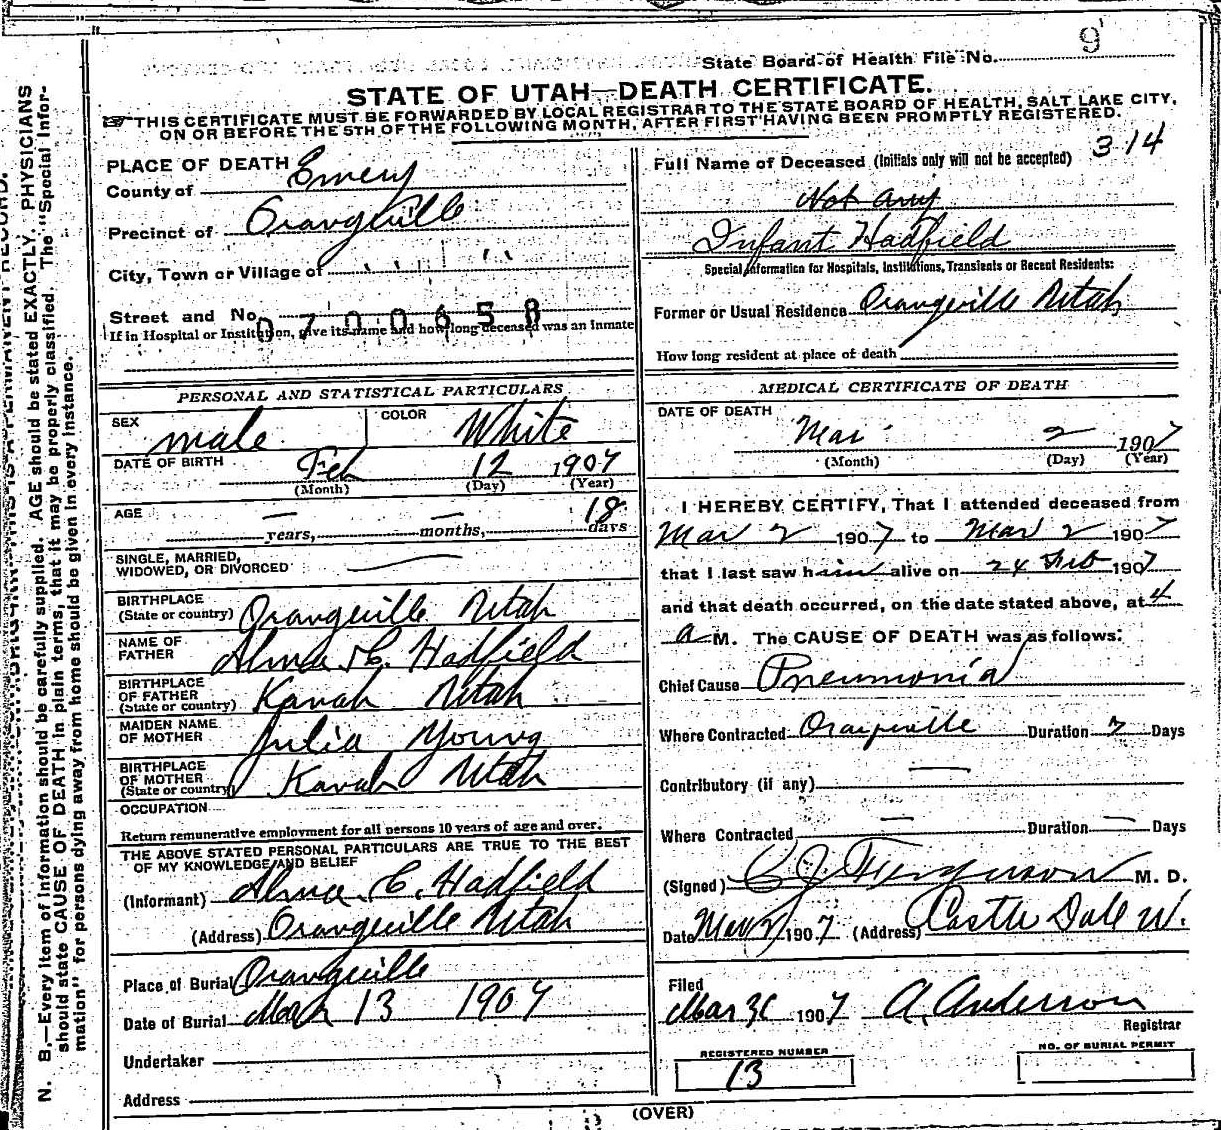 State Board of Health File No. 9
STATE OF UTAH—DEATH CERTIFICATE.
THIS CERTIFICATE MUST BE FORWARDED BY LOCAL REGISTRAR TO THE STATE BOARD OF HEALTH, SALT LAKE CITY,
ON OR BEFORE THE 5TH OF THE FOLLOWING MONTH, AFTER FIRST HAVING BEEN PROMPTLY REGISTERED.
PLACE OF DEATH
County of Emery
Precinct of Orangeville
City, Town or Village of " "
Street and No.
0700658
If in Hospital or Institution, give its name and how long deceased was an Inmate
Full Name of Deceased (Initials only will not be accepted) 314
Not any
Infant Hadfield
Special Information for Hospitals, Institutions, Transients or Recent Residents:
Former or Usual Residence Orangeville Utah
How long resident at place of death
PERSONAL AND STATISTICAL PARTICULARS
SEX male COLOR White
DATE OF BIRTH Feb 12 1907
(Month) (Day) (Year)
AGE — years, — months, 18 days
SINGLE, MARRIED,
WIDOWED, OR DIVORCED —
BIRTHPLACE
(State or country) Orangeville Utah
NAME OF
FATHER Alma C. Hadfield
BIRTHPLACE
OF FATHER
(State or country) Kanah Utah
MAIDEN NAME
OF MOTHER Julia Young
BIRTHPLACE
OF MOTHER
(State or country) Kanah Utah
OCCUPATION
Return remunerative employment for all persons 10 years of age and over.
THE ABOVE STATED PERSONAL PARTICULARS ARE TRUE TO THE BEST
OF MY KNOWLEDGE AND BELIEF
(Informant) Alma C. Hadfield
(Address) Orangeville Utah
Place of Burial Orangeville
Date of Burial March 3 1907
Undertaker
Address
MEDICAL CERTIFICATE OF DEATH
DATE OF DEATH
Mar 2 1907
(Month) (Day) (Year)
I HEREBY CERTIFY, That I attended deceased from
Mar 2 1907 to Mar 2 1907
that I last saw him alive on 24 Feb 1907
and that death occurred, on the date stated above, at 4
a M. The CAUSE OF DEATH was as follows:
Chief Cause Pneumonia
Where Contracted Orangeville Duration 7 Days
Contributory (if any) —
Where Contracted — Duration — Days
(Signed) C J. Ferguson M. D.
Date Mar 2 1907 (Address) Castle Dale U.
Filed
Mar 1907 A. Anderson
Registrar
REGISTERED NUMBER
13
NO. OF BURIAL PERMIT
(OVER)
N. B.—Every item of information should be carefully supplied. AGE should be stated EXACTLY. PHYSICIANS
should state CAUSE OF DEATH in plain terms, that it may be properly classified. The "Special Infor-
mation" for persons dying away from home should be given in every instance.